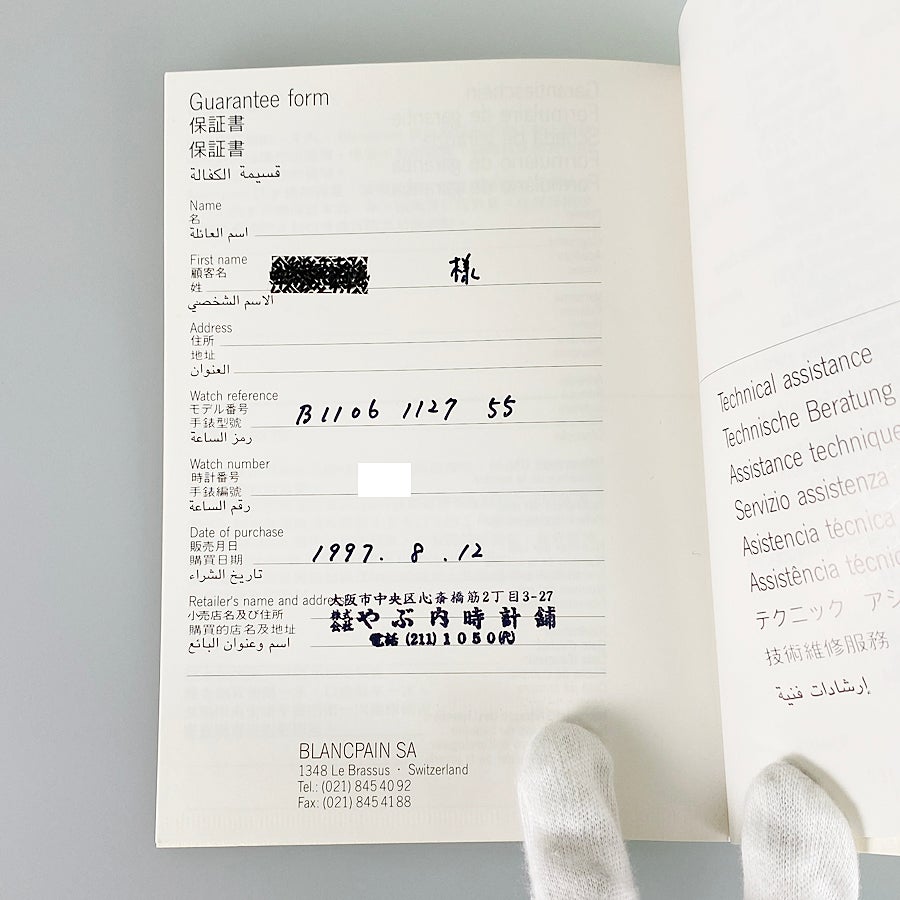 Guarantee form
保証書
保証書
قسيمة الكفالة
Name
名
اسم العائلة
First name
顧客名
姓
様
الاسم الشخصي
Address
住所
地址
العنوان
Watch reference
モデル番号
手錶型號
B1106 1127 55
رمز الساعة
Watch number
時計番号
手錶編號
رقم الساعة
Date of purchase
販売月日
購買日期
1997. 8. 12
تاريخ الشراء
Retailer's name and address
小売店名及び住所
購買的店名及地址
اسم وعنوان البائع
大阪市中央区心斎橋筋2丁目3-27
株式会社 やぶ内時計舗
電話 (211) 1050(代)
BLANCPAIN SA
1348 Le Brassus · Switzerland
Tel.: (021) 845 40 92
Fax: (021) 845 41 88
Technical assistance
Technische Beratung
Assistance technique
Servizio assistenza
Asistencia técnica
Assistência técnic
テクニック アシ
技術維修服務
إرشادات فنية